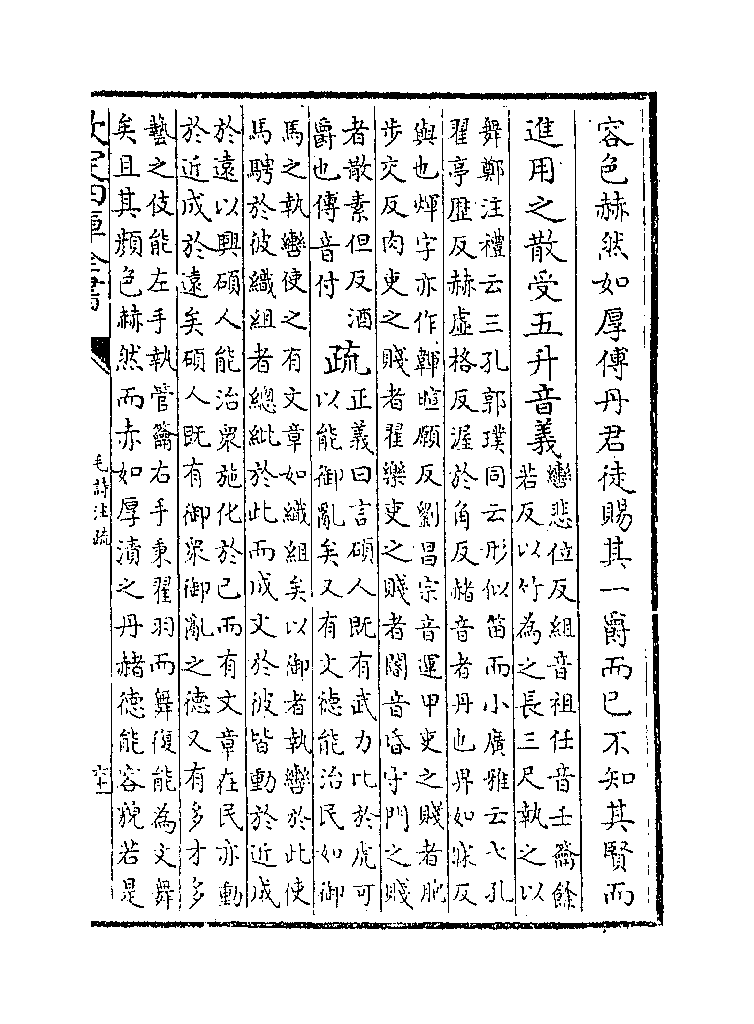 容色赫然如厚傅丹君徒賜其一爵而已不知其賢而
進用之散受五升音義
轡悲位反組音祖任音壬籥餘
若反以竹為之長三尺執之以
舞鄭注禮云三孔郭璞同云形似笛而小廣雅云七孔
翟亭歷反赫虛格反渥於角反赭音者丹也畀如寐反
與也煇字亦作韗暄願反劉昌宗音運甲吏之賤者胞
步交反肉吏之賤者翟樂吏之賤者閽音昏守門之賤
者散素但反酒
爵也傅音付
疏
正義曰言碩人既有武力比於虎可
以能御亂矣又有文德能治民如御
馬之執轡使之有文章如織組矣以御者執轡於此使
馬騁於彼織組者總紕於此而成文於彼皆動於近成
於遠以興碩人能治衆施化於己而有文章在民亦動
於近成於遠矣碩人既有御衆御亂之德又有多才多
藝之伎能左手執管籥右手秉翟羽而舞復能為文舞
矣且其顔色赫然而赤如厚漬之丹赭德能容貌若是
欽定四庫全書
毛詩注疏